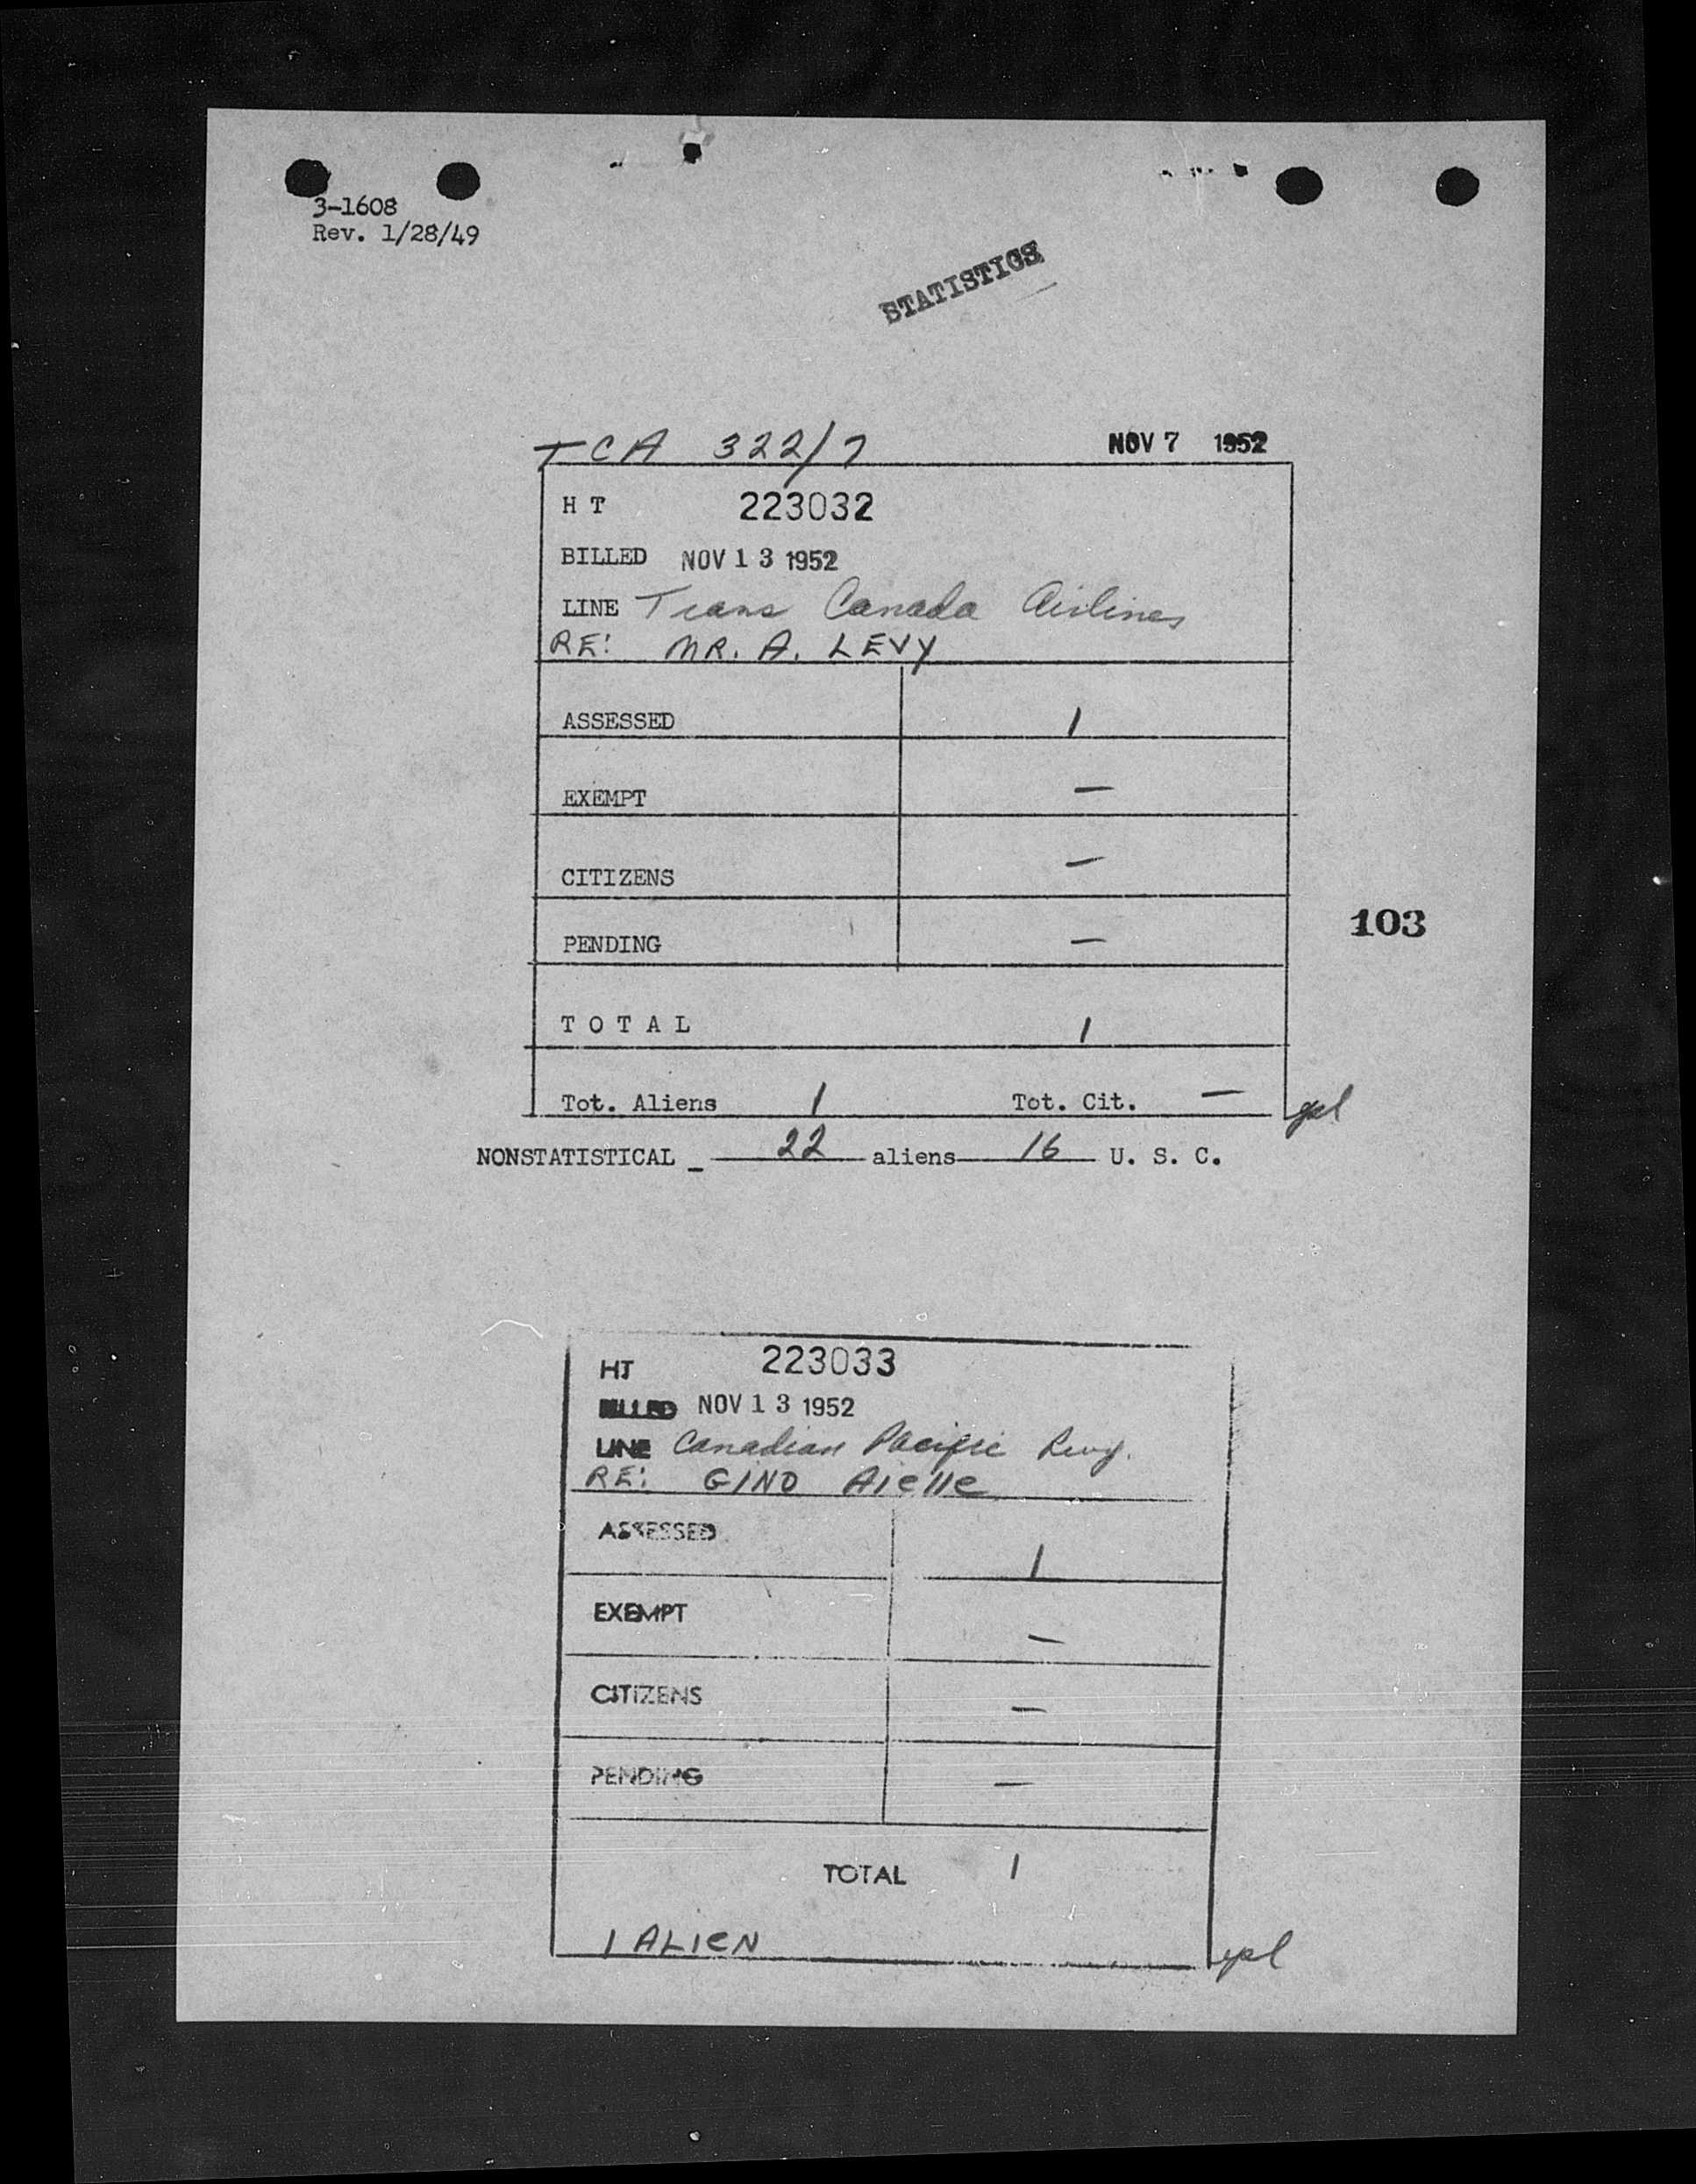 3-1608
Rev. 1/28/49
STATISTICS
TCA 322/7 NOV 7 1952
H T 223032
BILLED NOV 13 1952
LINE Trans Canada Airlines
RE: MR. A. LEVY
ASSESSED 1
EXEMPT —
CITIZENS —
PENDING —
103
T O T A L 1
Tot. Aliens 1 Tot. Cit. —
NONSTATISTICAL _ 22 aliens 16 U. S. C.
HT 223033
BILLED NOV 13 1952
LINE Canadian Pacific Rwy.
RE: GINO AIelle
ASSESSED 1
EXEMPT —
CITIZENS —
PENDING —
TOTAL 1
1 ALIEN